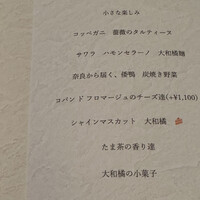 小さな楽しみ
コッペガニ　薔薇のタルティーヌ
サワラ　ハモンセラーノ　大和橘麵
奈良から届く、倭鴨　炭焼き野菜
コバンド フロマージュのチーズ達(+¥1,100)
シャインマスカット　大和橘
たま茶の香り達
大和橘の小菓子